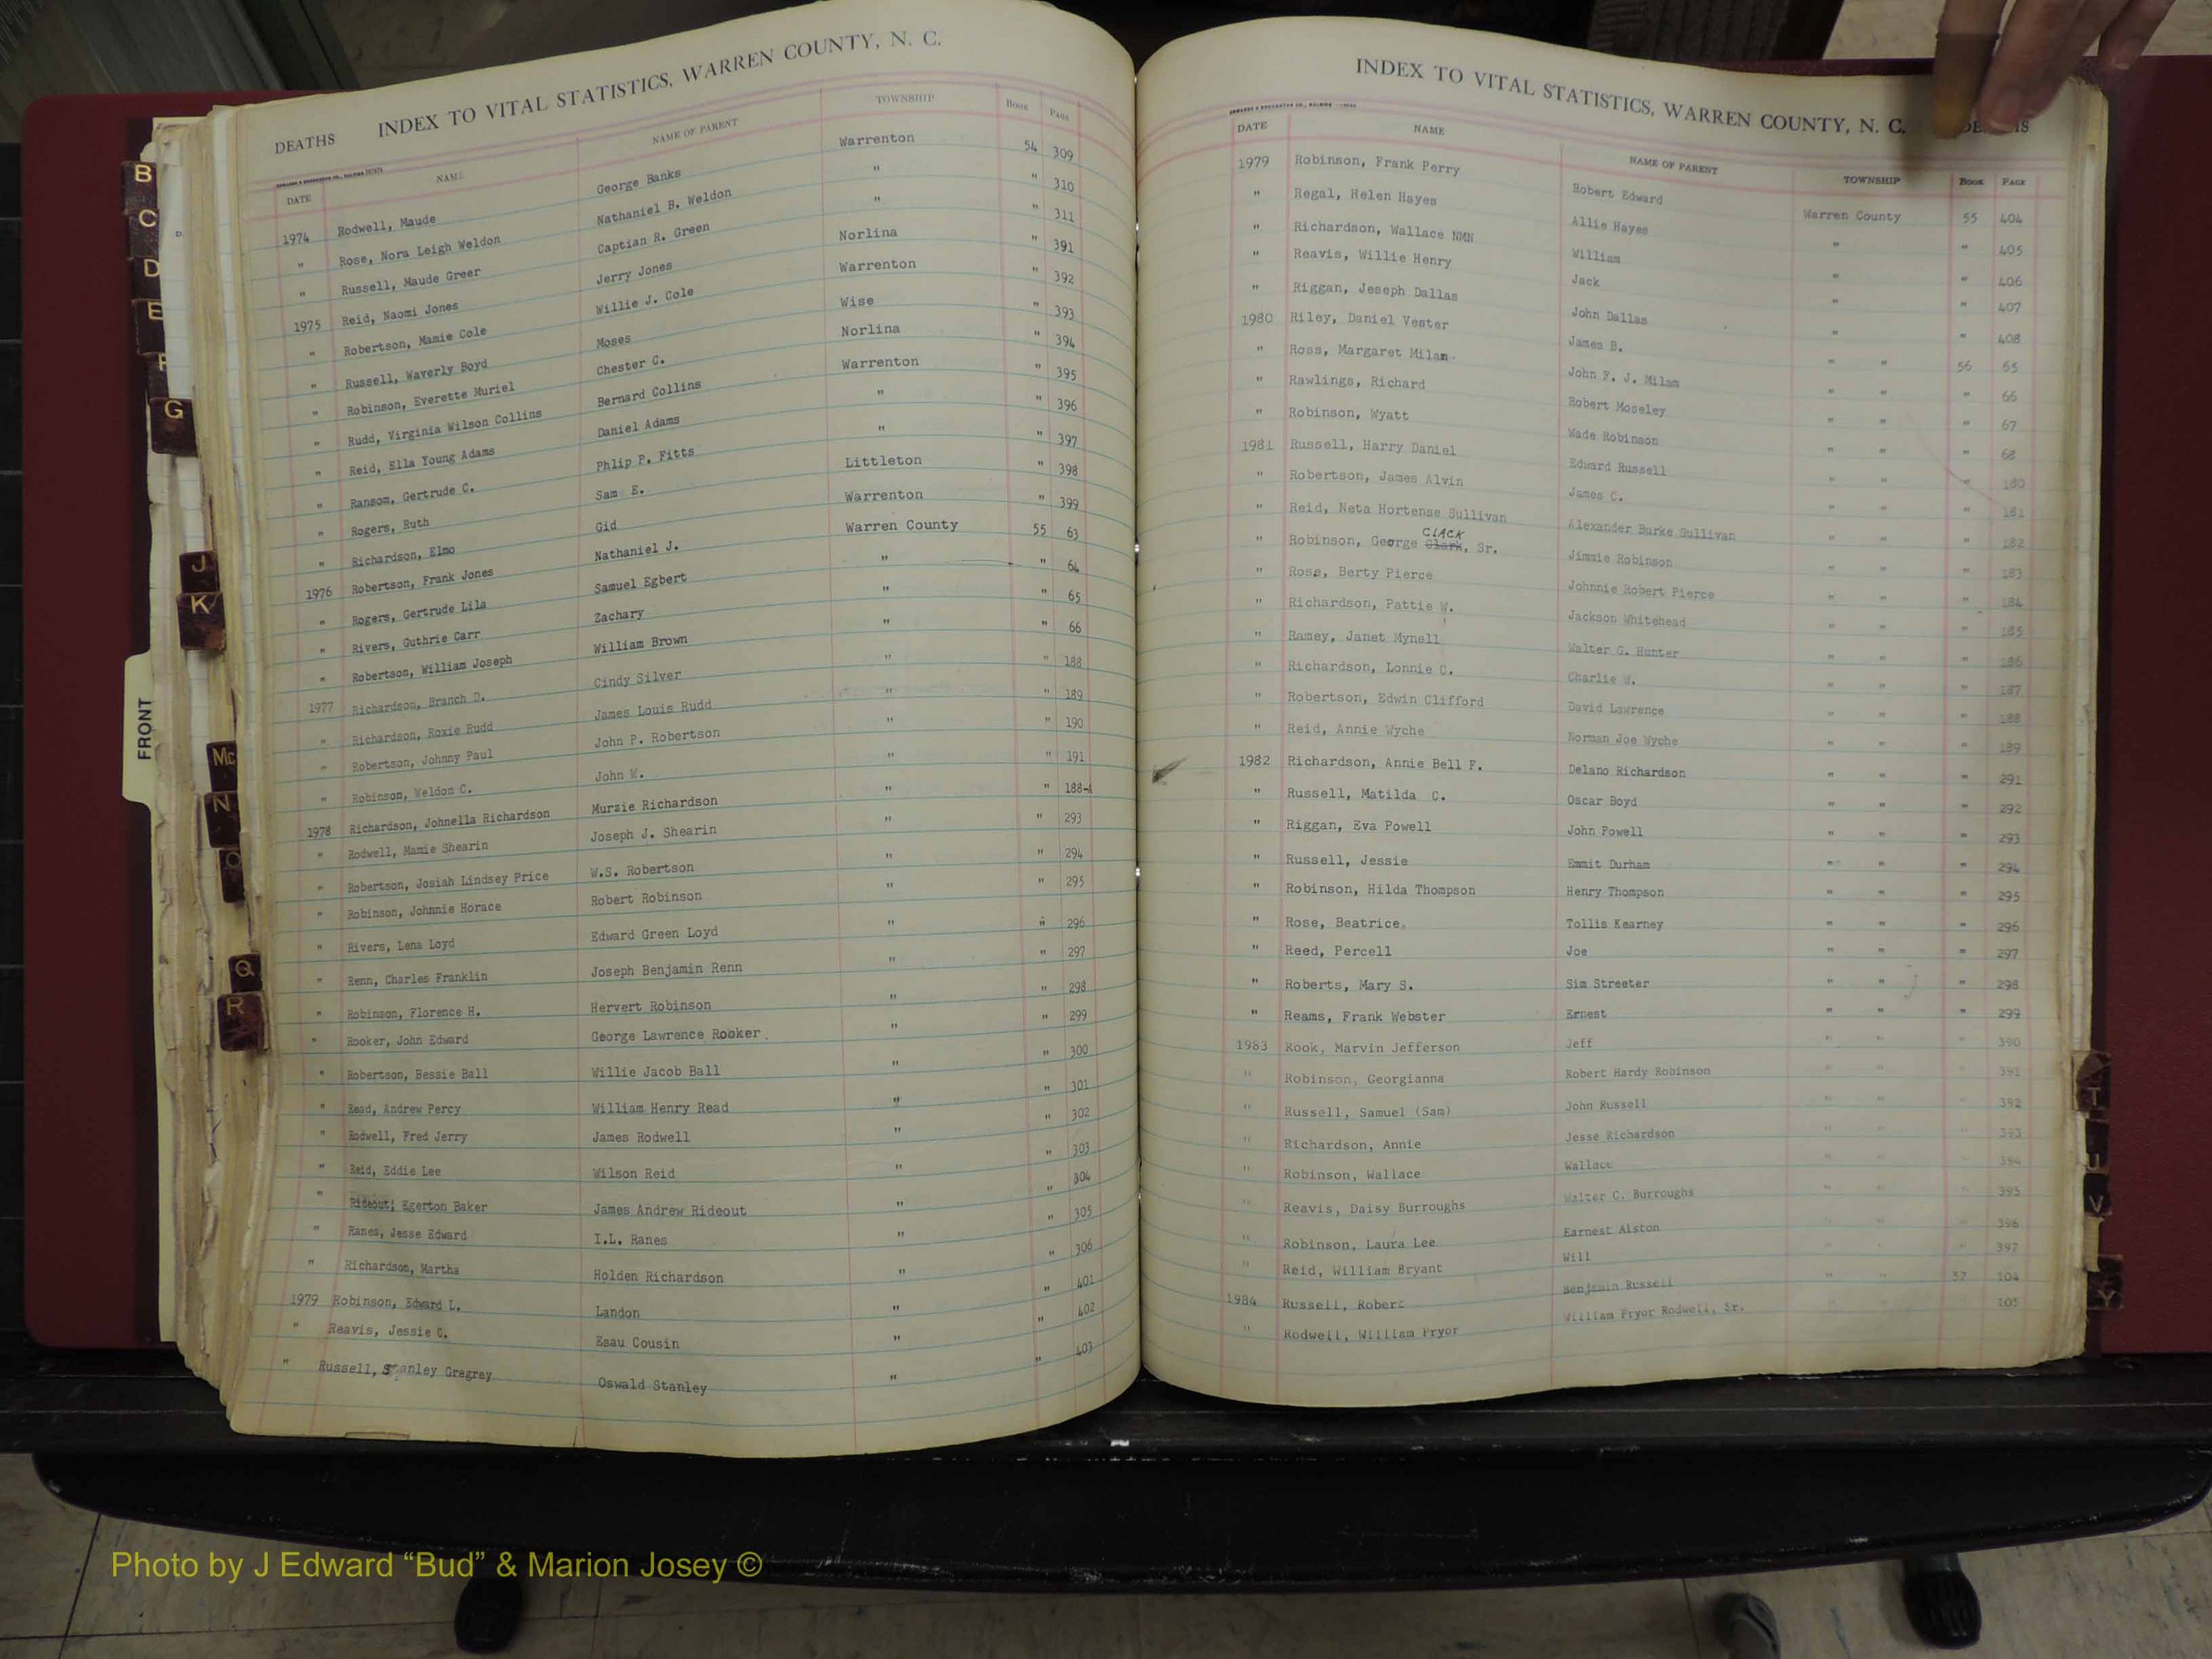 DEATHS INDEX TO VITAL STATISTICS, WARREN COUNTY, N. C.
DATE NAME NAME OF PARENT TOWNSHIP BOOK PAGE
1974 Rodwell, Maude George Banks Warrenton 54 309
" Rose, Nora Leigh Weldon Nathaniel B. Weldon " " 310
" Russell, Maude Greer Captian R. Green " " 311
1975 Reid, Naomi Jones Jerry Jones Norlina " 391
" Robertson, Mamie Cole Willie J. Cole Warrenton " 392
" Russell, Waverly Boyd Moses Wise " 393
" Robinson, Everette Muriel Chester C. Norlina " 394
" Rudd, Virginia Wilson Collins Bernard Collins Warrenton " 395
" Reid, Ella Young Adams Daniel Adams " " 396
" Ransom, Gertrude C. Phlip P. Fitts " " 397
" Rogers, Ruth Sam E. Littleton " 398
" Richardson, Elmo Gid Warrenton " 399
1976 Robertson, Frank Jones Nathaniel J. Warren County 55 63
" Rogers, Gertrude Lila Samuel Egbert " " 64
" Rivers, Guthrie Carr Zachary " " 65
" Robertson, William Joseph William Brown " " 66
1977 Richardson, Branch D. Cindy Silver " " 188
" Richardson, Roxie Rudd James Louis Rudd " " 189
" Robertson, Johnny Paul John P. Robertson " " 190
" Robinson, Weldon C. John W. " " 191
1978 Richardson, Johnella Richardson Murzie Richardson " " 188-A
" Rodwell, Mamie Shearin Joseph J. Shearin " " 293
" Robertson, Josiah Lindsey Price W.S. Robertson " " 294
" Robinson, Johnnie Horace Robert Robinson " " 295
" Rivers, Lena Loyd Edward Green Loyd " " 296
" Renn, Charles Franklin Joseph Benjamin Renn " " 297
" Robinson, Florence H. Hervert Robinson " " 298
" Rooker, John Edward George Lawrence Rooker " " 299
" Robertson, Bessie Ball Willie Jacob Ball " " 300
" Read, Andrew Percy William Henry Read " " 301
" Rodwell, Fred Jerry James Rodwell " " 302
" Reid, Eddie Lee Wilson Reid " " 303
" Rideout, Egerton Baker James Andrew Rideout " " 304
" Ranes, Jesse Edward I.L. Ranes " " 305
" Richardson, Martha Holden Richardson " " 306
1979 Robinson, Edward L. Landon " " 401
" Reavis, Jessie C. Esau Cousin " " 402
" Russell, Stanley Gregrey Oswald Stanley " " 403
INDEX TO VITAL STATISTICS, WARREN COUNTY, N. C.
DATE NAME NAME OF PARENT TOWNSHIP BOOK PAGE
1979 Robinson, Frank Perry Robert Edward Warren County 55 404
" Regal, Helen Hayes Allie Hayes " " 405
" Richardson, Wallace NMN William " " 406
" Reavis, Willie Henry Jack " " 407
" Riggan, Jeseph Dallas John Dallas " " 408
1980 Riley, Daniel Vester James B. " " 56 65
" Ross, Margaret Milam John F. J. Milam " " " 66
" Rawlings, Richard Robert Moseley " " " 67
" Robinson, Wyatt Wade Robinson " " " 68
1981 Russell, Harry Daniel Edward Russell " " " 180
" Robertson, James Alvin James C. " " " 181
" Reid, Neta Hortense Sullivan Alexander Burke Sullivan " " " 182
" Robinson, George Clark, Sr. CLACK Jimmie Robinson " " " 183
" Rose, Berty Pierce Johnnie Robert Pierce " " " 184
" Richardson, Pattie W. Jackson Whitehead " " " 185
" Ramey, Janet Mynell Walter G. Hunter " " " 186
" Richardson, Lonnie C. Charlie W. " " " 187
" Robertson, Edwin Clifford David Lawrence " " " 188
" Reid, Annie Wyche Norman Joe Wyche " " " 189
1982 Richardson, Annie Bell F. Delano Richardson " " " 291
" Russell, Matilda C. Oscar Boyd " " " 292
" Riggan, Eva Powell John Powell " " " 293
" Russell, Jessie Emmit Durham " " " 294
" Robinson, Hilda Thompson Henry Thompson " " " 295
" Rose, Beatrice Tollis Kearney " " " 296
" Reed, Percell Joe " " " 297
" Roberts, Mary S. Sim Streeter " " " 298
" Reams, Frank Webster Ernest " " " 299
1983 Rook, Marvin Jefferson Jeff " " " 390
" Robinson, Georgianna Robert Hardy Robinson " " " 391
" Russell, Samuel (Sam) John Russell " " " 392
" Richardson, Annie Jesse Richardson " " " 393
" Robinson, Wallace Wallace " " " 394
" Reavis, Daisy Burroughs Walter C. Burroughs " " " 395
" Robinson, Laura Lee Earnest Alston " " " 396
" Reid, William Bryant Will " " " 397
1984 Russell, Robert Benjamin Russell " " 57 104
" Rodwell, William Pryor William Pryor Rodwell, Sr. " " " 105
B
C
D
E
G
J
K
FRONT
Mc
N
O
Q
R
T
U
V
Y
Photo by J Edward “Bud” & Marion Josey ©